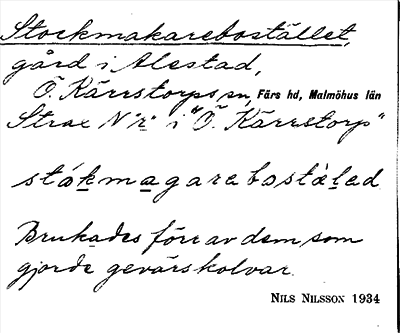 Stockmakarebostället,
gård i Alestad,
Ö. Kärrstorps sn, Färs hd, Malmöhus län
Strax N "r" i "Ö. Kärrstorp"
stákmagarebostàled
Brukades förr av dem som
gjorde gevärskolvar.
NILS NILSSON 1934